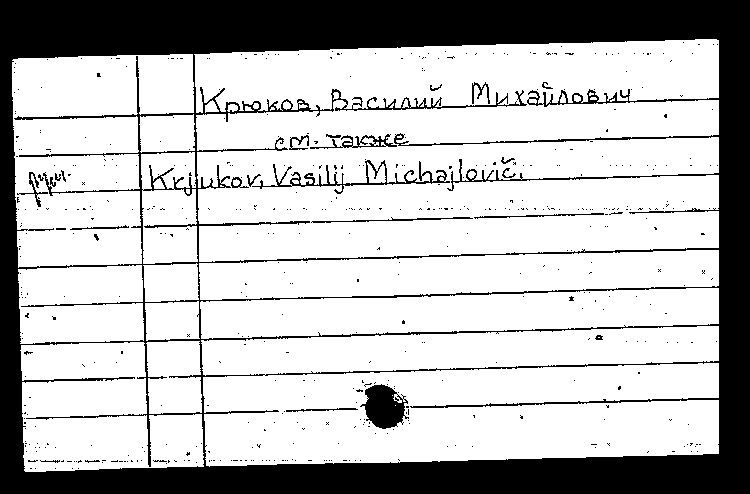 Крюков, Василий Михайлович
см. также
Krjukov, Vasilij Michajlovič.